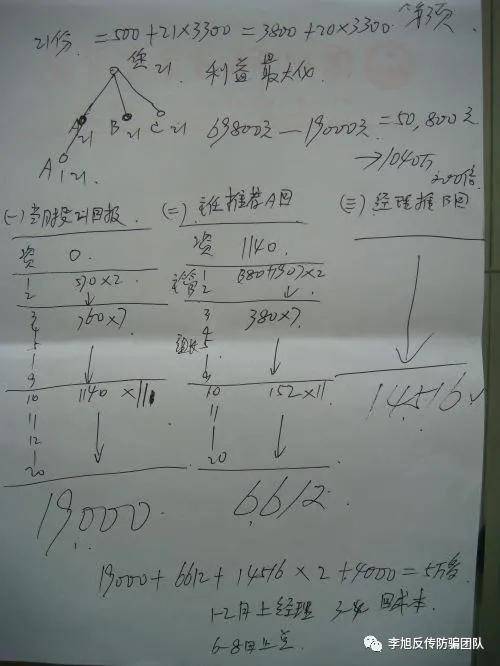 21份 = 500 + 21×3300 = 3800 + 20×3300 第3页
您 21 利益最大化
A 21 B 21 C 21
69800元 — 19000元 = 50,800元
A1 21 → 1040万
(一) 当月投21回报 (二) 主任推荐A回 (三) 经理推B回
资 0. 资 1140.
1 570×2 主管 1
2 2
3 760×7 3 380×7
4 4
5 组长 5
9 9
10 1140 ×11 10 152×11
11 11
12
20 20
19,000 6612 14516
19000 + 6612 + 14516 × 2 + 4000 = 5万多
1-2月上经理 3-4 回成本
6-8月上总
李旭反传防骗团队